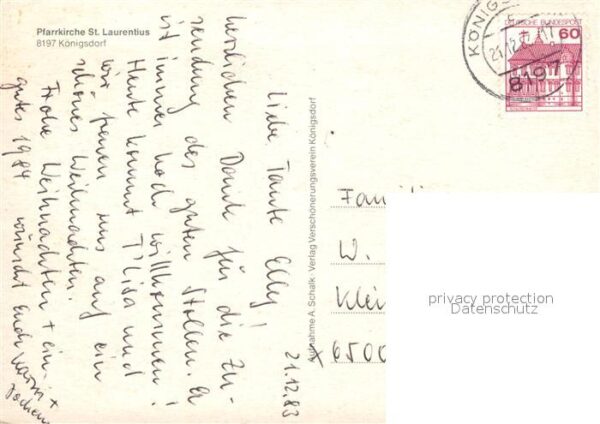 Pfarrkirche St. Laurentius
8197 Königsdorf
21.12.83
Liebe Tante Elly!
herzlichen Dank für die Zu-
sendung des guten Stollen. Er
ist immer hoch willkommen!
Heute kommt T'Lisa und
wir freuen uns auf ein
schönes Weihnachten.
Frohe Weihnachten + ein
gutes 1984 wünscht Euch Karin +
Jochen
Aufnahme A. Schalk · Verlag Verschönerungsverein Königsdorf
KÖNIGS
21.12.83-17
8197
DEUTSCHE BUNDESPOST
60
Famili
W.
Klei
6500
privacy protection
Datenschutz